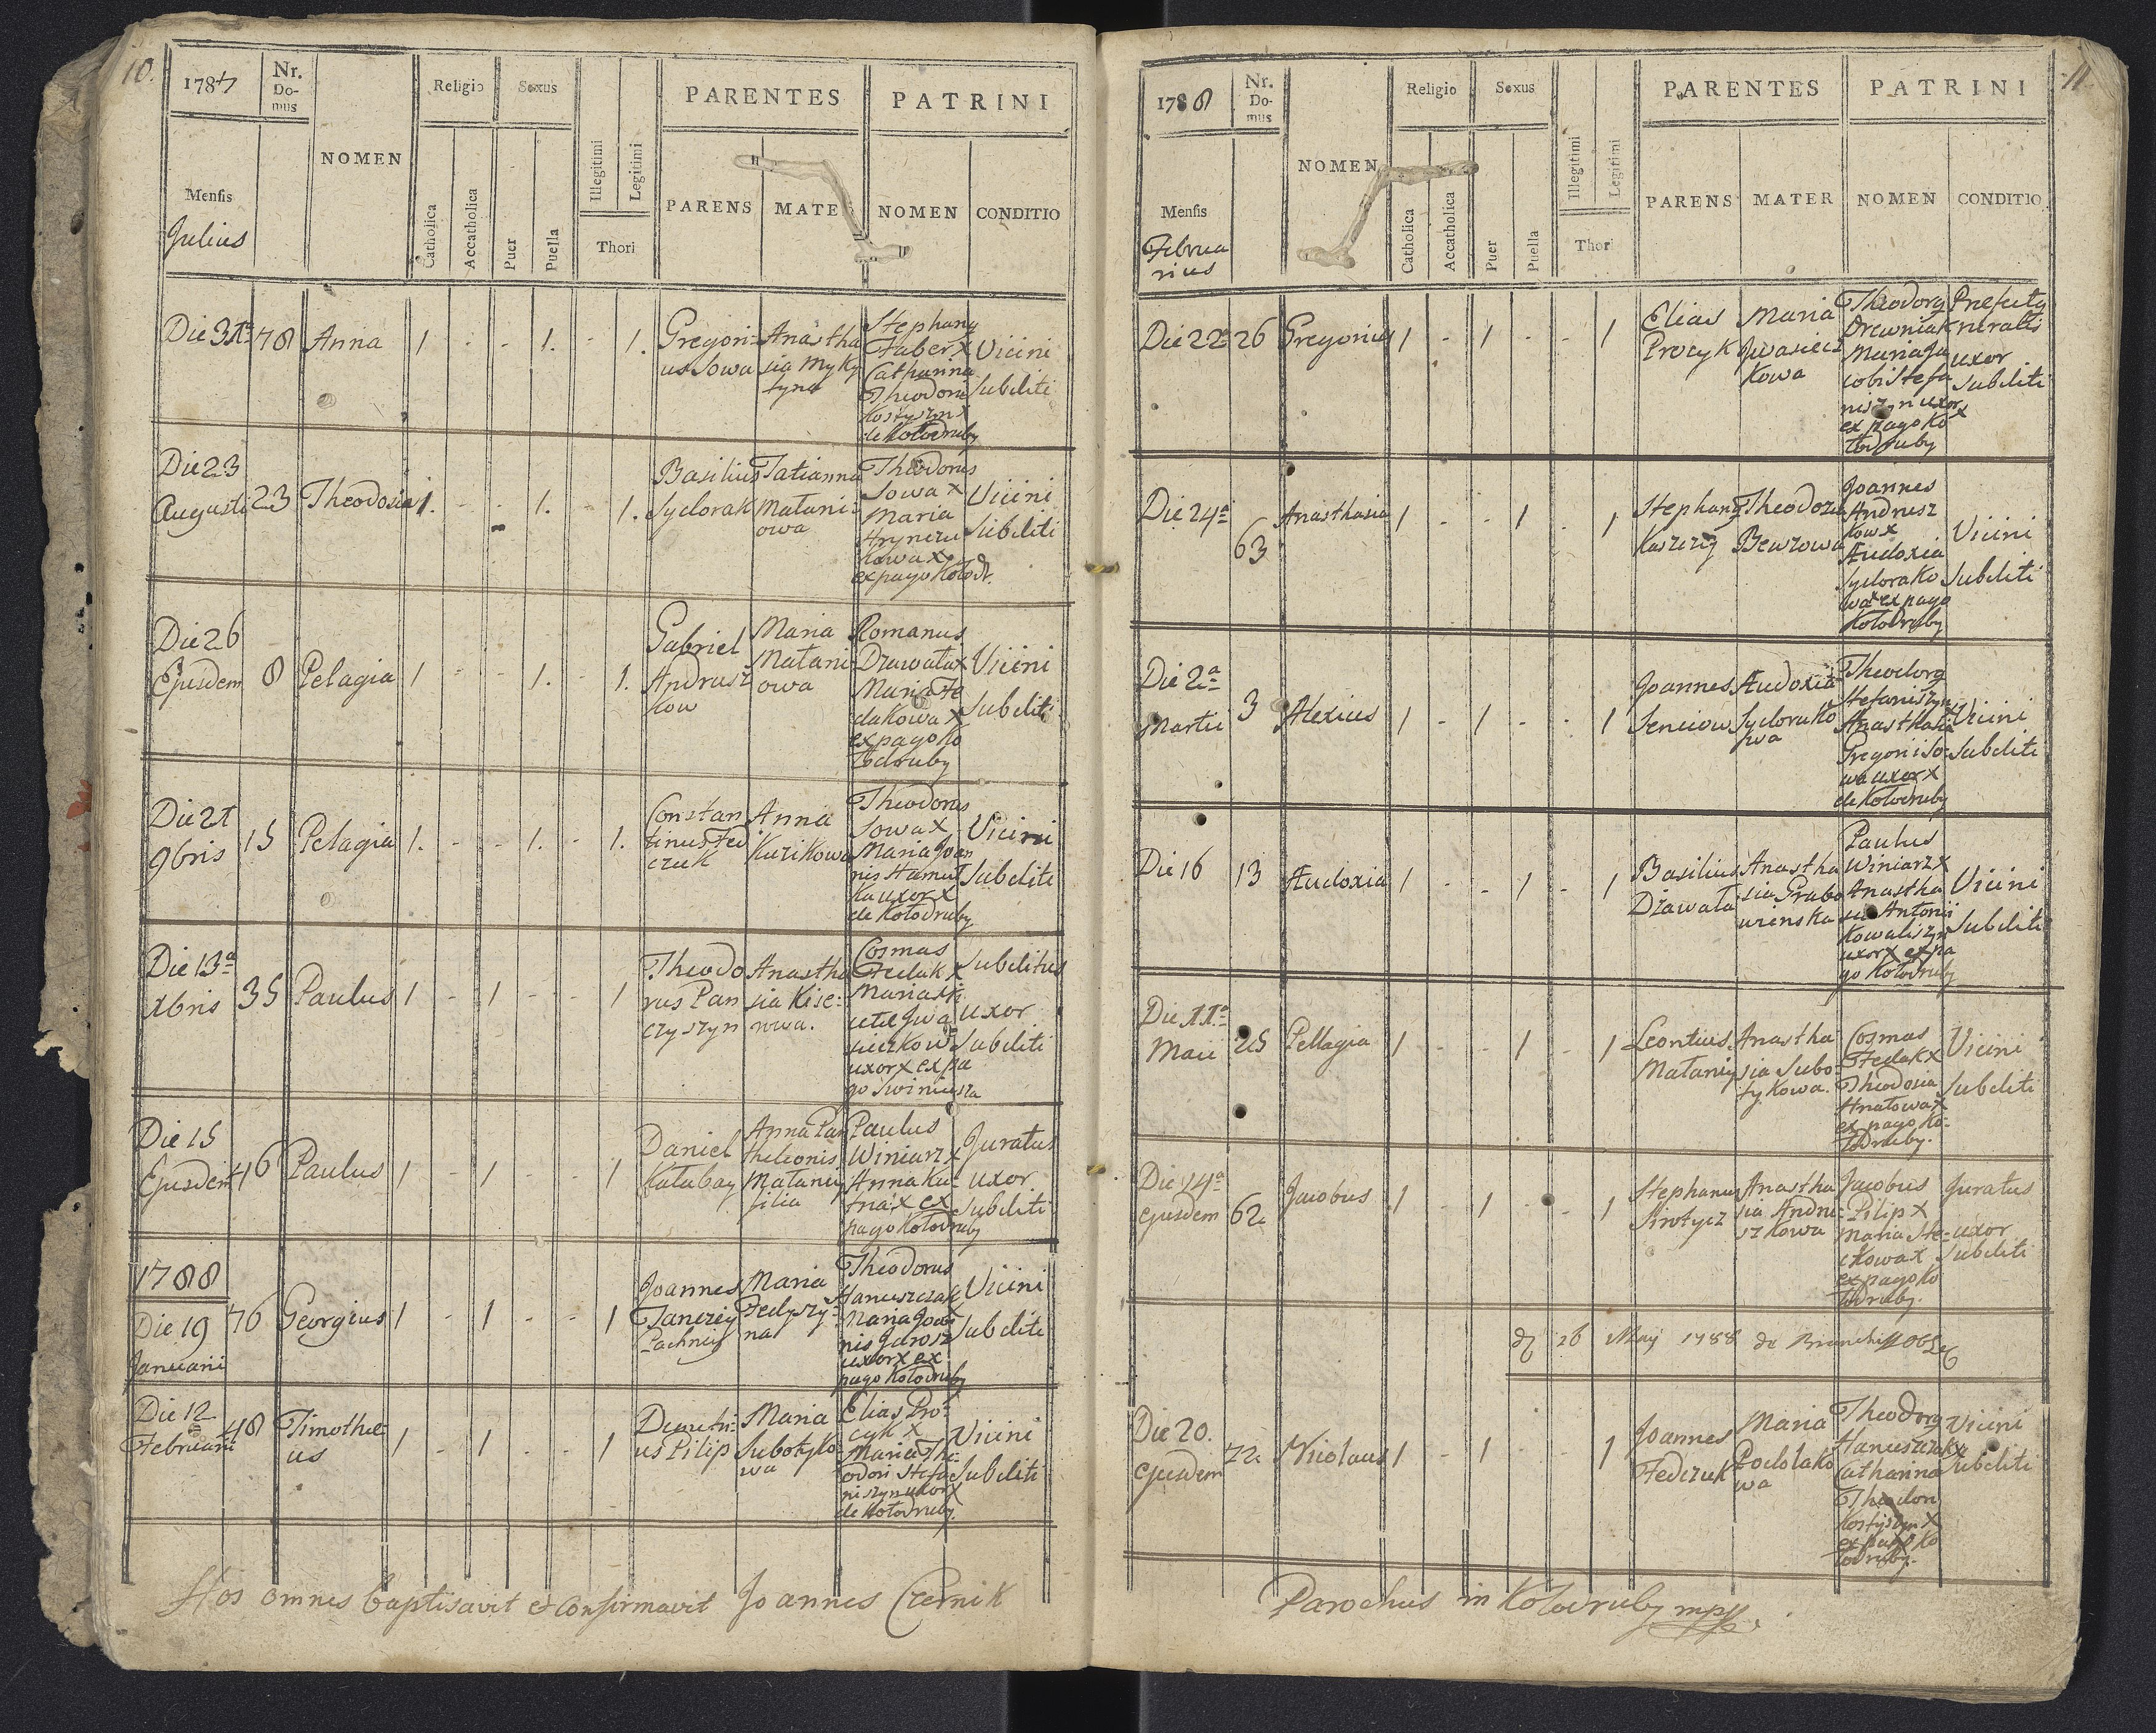 10.
1787
Nr. Do- mus
NOMEN
Religio
Sexus
Illegitimi
Legitimi
PARENTES
PATRINI
Mensis
Julius
Catholica
Accatholica
Puer
Puella
Thori
PARENS
MATE
NOMEN
CONDITIO
Die 31a 78 Anna 1 - - 1. - 1.
Gregori-
us Sowa
Anastha
sia Myky
tyna
Stephanus
Faber x
Catharina
Theodori
Kostyszyn x
de Kołodruby
Vicini
Subditi
Die 23
Augusti 23 Theodosia 1. - - 1. - 1.
Basilius
Sydorak
Tatianna
Matani-
owa
Theodorus
Sowa x
Maria
Hrynczu
kowa x
ex pago Kołodr.
Vicini
Subditi
Die 26
Ejusdem 8 Pelagia 1 - - 1. - 1.
Gabriel
Andrusz
kow
Maria
Matani
owa
Romanus
Dzawała x
Maria Fe
dakowa x
ex pago Ko
łodruby
Vicini
Subditi
Die 21
9bris 15 Pelagia 1. - - 1. - 1.
Constan
tinus Fed
czuk
Anna
Kuzikowa
Theodorus
Sowa x
Maria Joan
nis Hamut
ka uxor x
de Kołodruby
Vicini
Subditi
Die 13a
Xbris 35 Paulus 1 - 1 - - 1
Theodo
rus Pan
czyszyn
Anastha
sia Kise-
owa.
Cosmas
Fedak x
Uxor x ex pa
go Swiniusza
Subditus
uxor
Subditi
Die 15
Ejusdem 46 Paulus 1 - 1 - - 1
Daniel
Kałabay
Anna Pan
theleonis
Matanij
filia
Paulus
Winiarz x
Anna Ku-
tna x ex
pago Kołodruby
Juratus
uxor
Subditi
1788
Die 19
Januarii 76 Georgius 1 - 1 - - 1
Joannes
Tanczij
Pachnij
Maria
Fedyszy-
na
Theodorus
Hanuszczak
Maria Joan
nis Jarosz
uxor x ex
pago Kołodruby
Vicini
Subditi
Die 12
Februarii 48 Timothe
us 1 - 1 - - 1
Demetri-
us Pilip
Maria
Subotyko-
wa
Elias Pro-
cyk x
Maria The-
odori Stefa
niszyn uxor x
de Kołodruby.
Vicini
Subditi
Hos omnes baptisavit et Confirmavit Joannes Czernik
11.
1788
Nr. Do- mus
NOMEN
Religio
Sexus
Illegitimi
Legitimi
PARENTES
PATRINI
Mensis
Februa
rius
Catholica
Accatholica
Puer
Puella
Thori
PARENS
MATER
NOMEN
CONDITIO
Die 22 26 Gregorius 1 - 1 - - 1
Elias
Procyk
Maria
Iwasiecz
kowa
Theodorus
Drewniak
Maria Ja
cobi Stefa
niszyn uxor x
ex pago Ko
łodruby
uxor
Subditi
Die 24a
63 Anasthasia 1 - - 1 - 1
Stephanus
Kaszczij
Theodozia
Bewzowa
Joannes
Andrusz
kow x
Audoxia
Sydorako
wa x ex pago
Kołodruby
Vicini
Subditi
Die 2a
Martii 3 Alexius 1 - 1 - - 1
Joannes
Senciow
Audoxia
Sydorako
wa
Theodorus
Stefaniszyn x
Anasthasia
Gregorii So-
wa uxor x
de Kołodruby
Vicini
Subditi
Die 16 13 Audoxia 1 - - 1 - 1
Basilius
Dzawała
Anastha
sia Grabo
wienska
Paulus
Winiarz x
Anastha
sia Antonii
Kowaliszyn
uxor x ex pa
go Kołodruby
Vicini
Subditi
Die 11a
Maii 25 Pellagia 1 - - 1 - 1
Leontius
Matanij
Anastha
sia Subo-
tykowa.
Cosmas
Fedak x
Theodosia
Hnatowa x
ex pago Ko-
łodruby.
Vicini
Subditi
Die 14a
ejusdem 62 Jacobus 1 - 1 - - 1
Stephanus
Sirotycz
Anastha
sia Andru-
szkowa
Jacobus
Pilip x
Maria Ste-
ckowa x
ex pago Ko
łodruby.
Juratus
uxor
Subditi
16 Maij 1788
Die 20.
ejusdem 72 Nicolaus 1 - 1 1
Joannes
Fedczuk
Maria
Podolako
wa
Theodorus
Hanuszczak x
Catharina
Theodori
Kostyszyn x
ex pago Ko
łodruby.
Vicini
Subditi
Parochus in Kołodruby mpp.